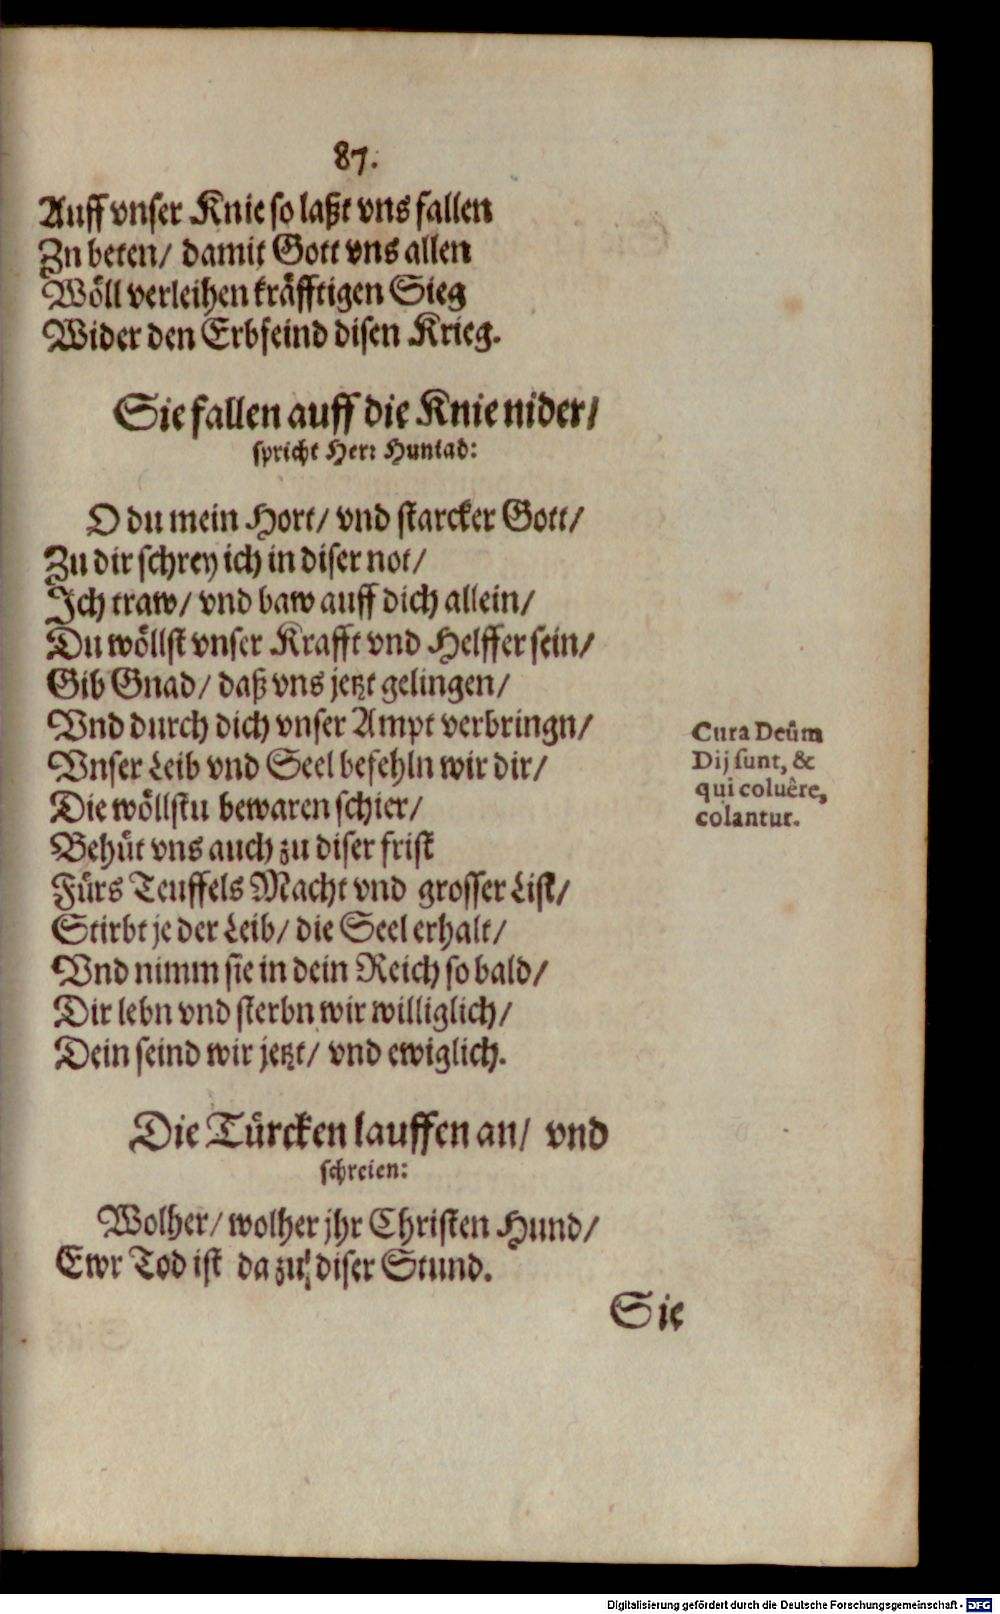 87.
Auff vnser Knie so laßt vns fallen
Zu beten/ damit Gott vns allen
Wöll verleihen kräfftigen Sieg
Wider den Erbfeind disen Krieg.
Sie fallen auff die Knie nider/
spricht Herr Huniad:
O du mein Hort/ vnd starcker Gott/
Zu dir schrey ich in diser not/
Ich traw/ vnd baw auff dich allein/
Du wöllst vnser Krafft vnd Helffer sein/
Gib Gnad/ daß vns jetzt gelingen/
Vnd durch dich vnser Ampt verbringn/
Vnser Leib vnd Seel befehln wir dir/
Die wöllstu bewaren schier/
Behüt vns auch zu diser frist
Fürs Teuffels Macht vnd grosser List/
Stirbt je der Leib/ die Seel erhalt/
Vnd nimm sie in dein Reich so bald/
Dir lebn vnd sterbn wir williglich/
Dein seind wir jetzt/ vnd ewiglich.
Cura Deûm
Dij sunt, &
qui coluêre,
colantur.
Die Türcken lauffen an/ vnd
schreien:
Wolher/ wolher jhr Christen Hund/
Ewr Tod ist da zu diser Stund.
Sie
Digitalisierung gefördert durch die Deutsche Forschungsgemeinschaft - DFG